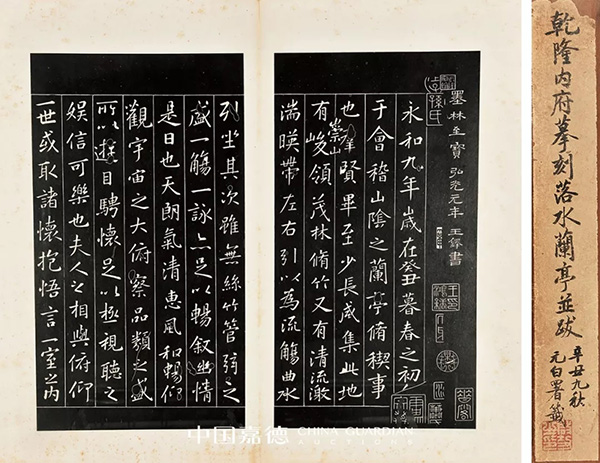 乾隆内府摹刻落水蘭亭並跋
辛丑九秋
元白署籤
墨林至寶 弘光元年 王鐸書
永和九年歲在癸丑暮春之初
于會稽山陰之蘭亭脩稧事
也羣賢畢至少長咸集此地
有崇山峻領茂林脩竹又有清流激
湍暎帶左右引以為流觴曲水
列坐其次雖無絲竹管弦之
盛一觴一詠亦足以暢叙幽情
是日也天朗氣清惠風和暢仰
觀宇宙之大俯察品類之盛
所以遊目騁懷足以極視聽之
娛信可樂也夫人之相與俯仰
一世或取諸懷抱悟言一室之内
中国嘉德 CHINA GUARDIAN
AUCTIONS